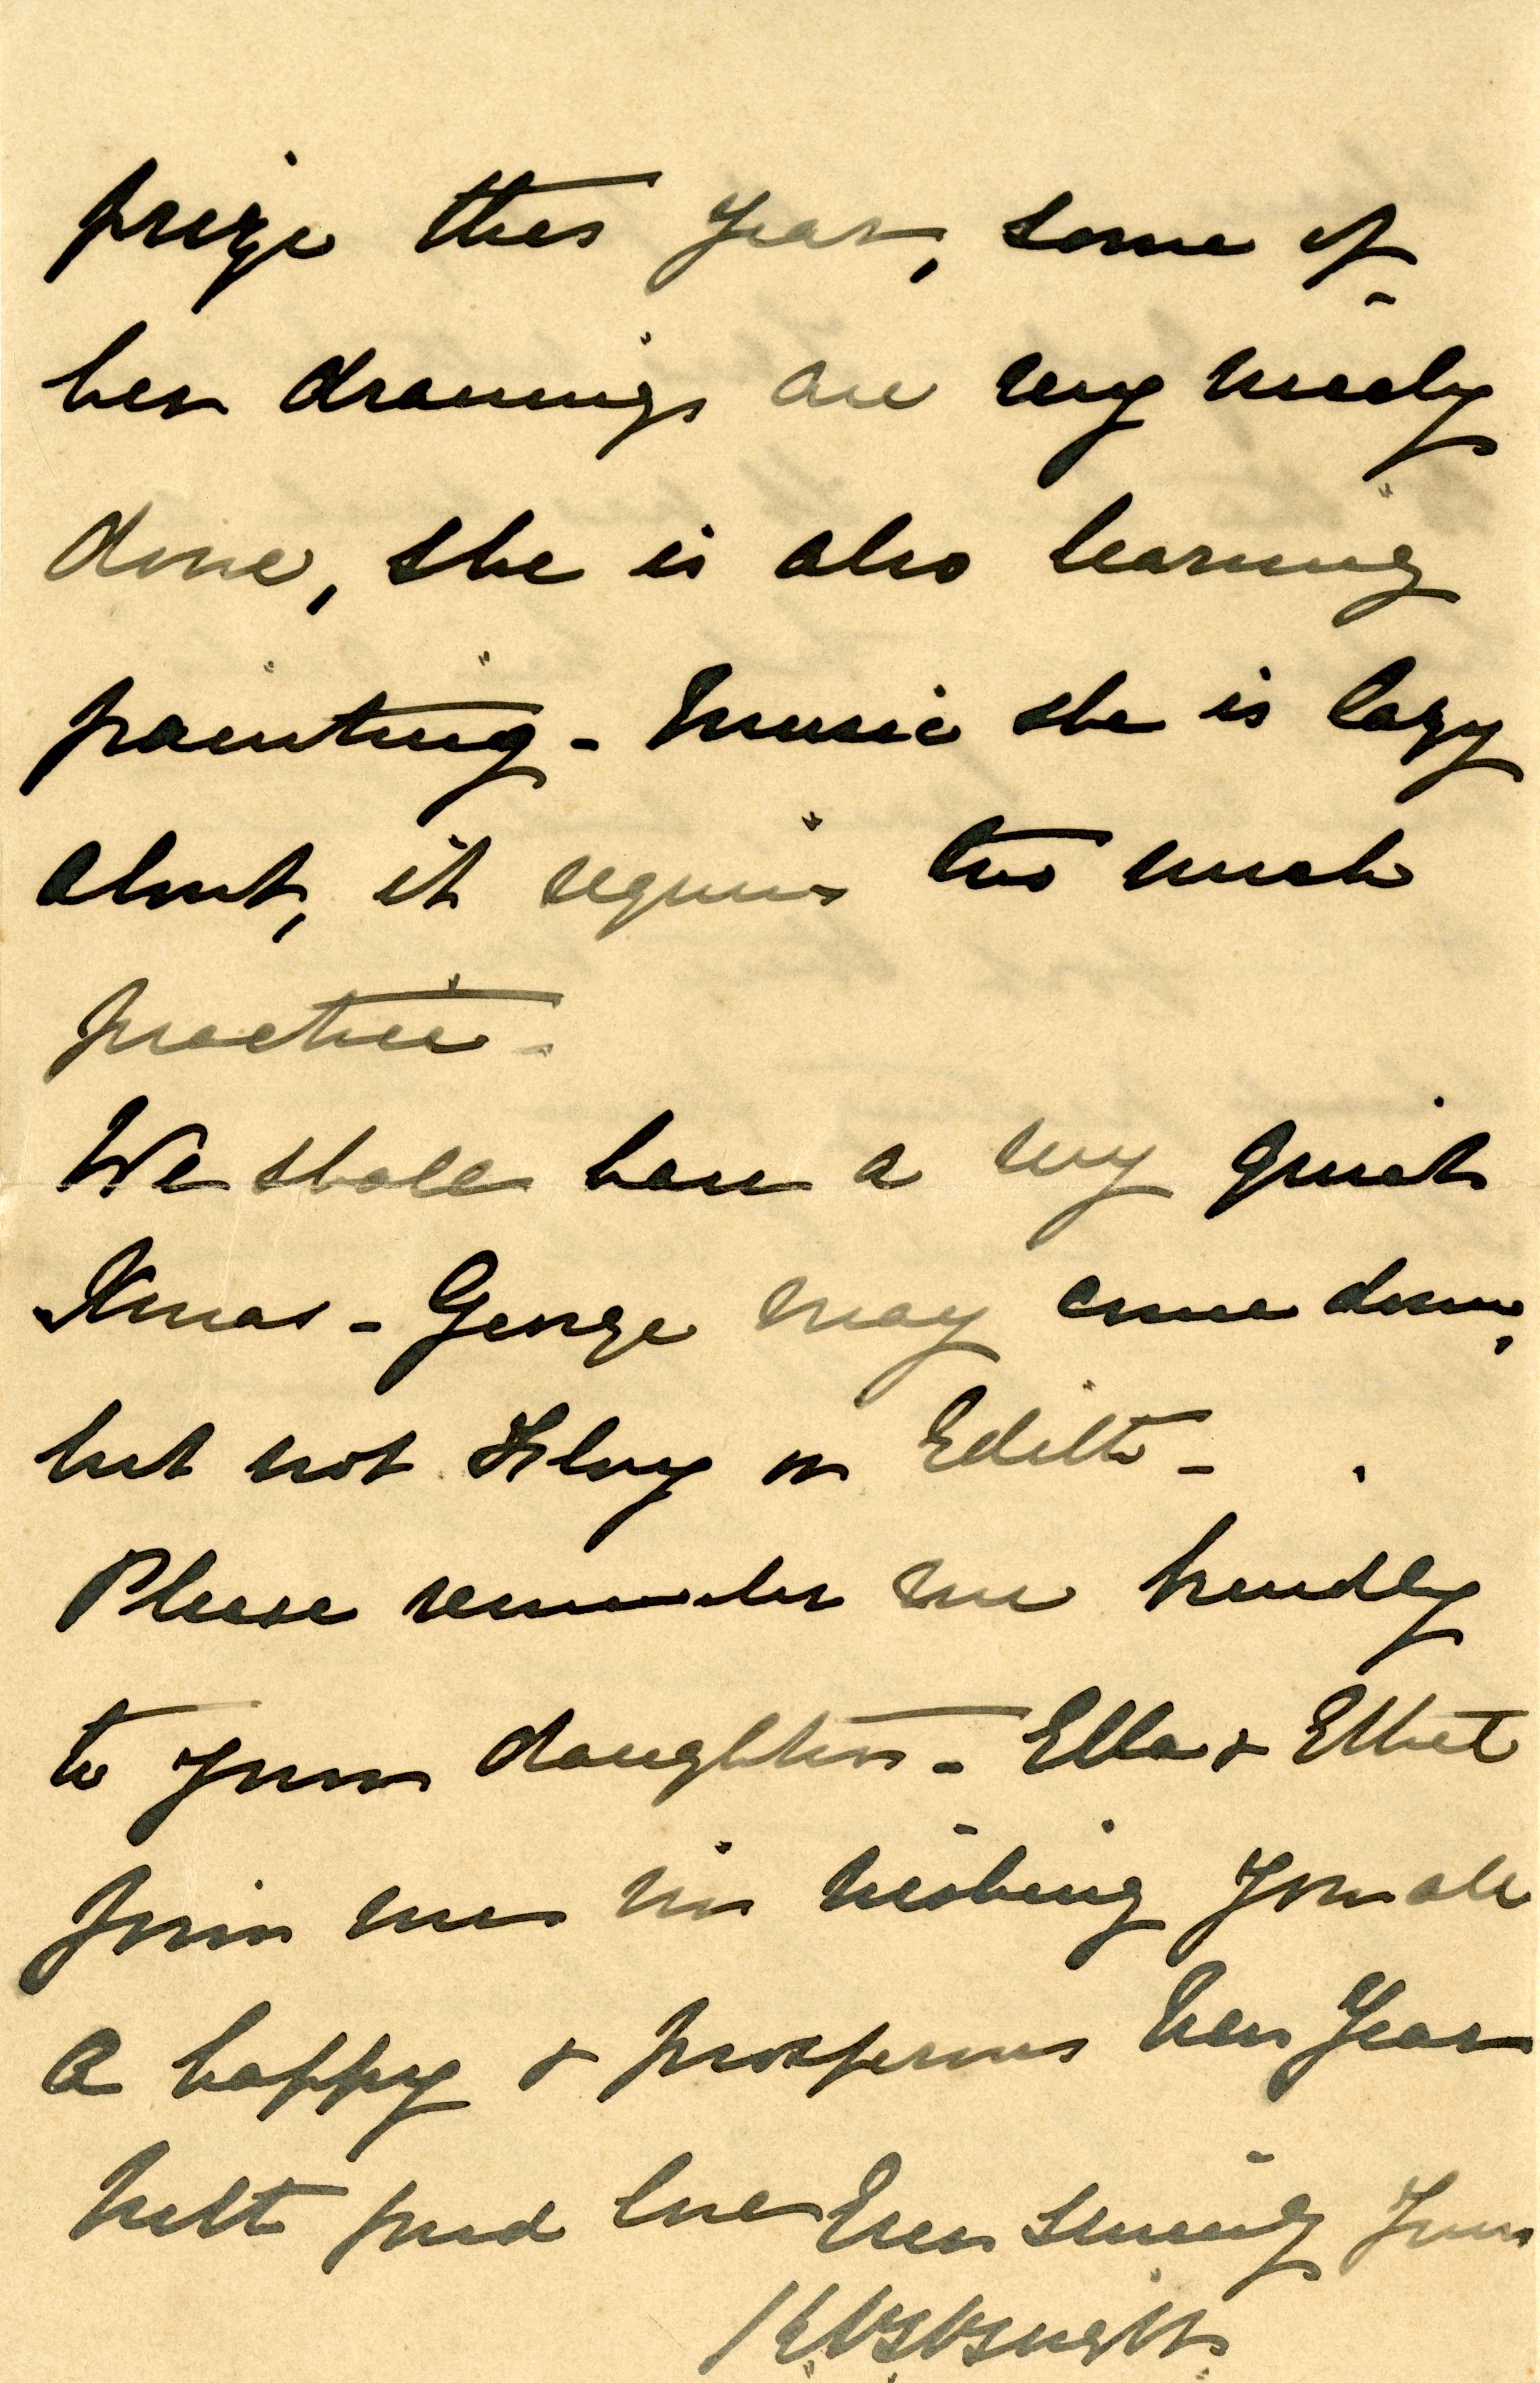 prize this year, some of
her drawings are very nicely
done, she is also learning
painting - Music she is lazy
about, it requires too much
practice -
We shall have a very quiet
Xmas - George may come down,
but not or Edith -
Please remember me kindly
to your daughters - Ella &
join me in wishing you all
a happy & prosperous New Year
With fond love Ever sincerely Yours